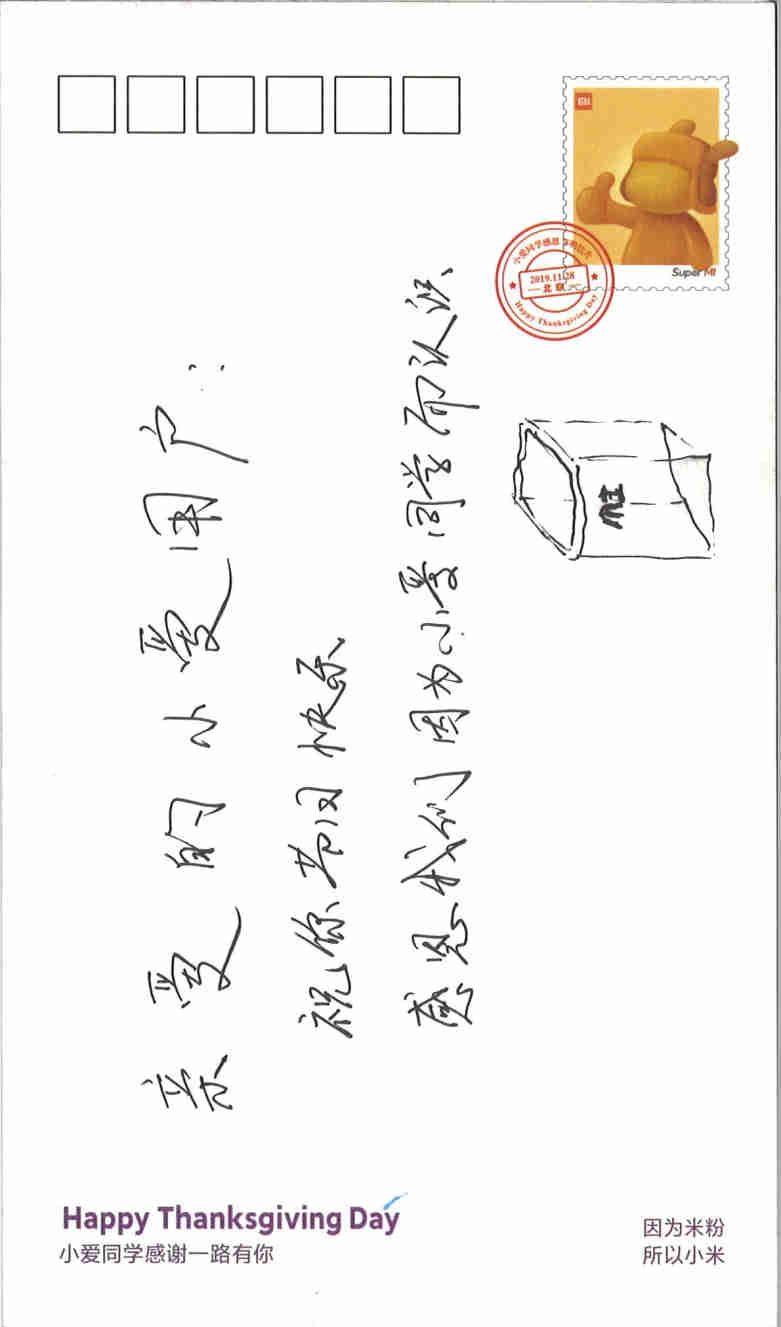 Super MI
小爱同学感恩节明信片
2019.11.28
北京
Happy Thanksgiving Day
亲爱的小爱用户:
祝你节日快乐
感恩我们因为小爱同学而认识、
Happy Thanksgiving Day
小爱同学感谢一路有你
因为米粉
所以小米